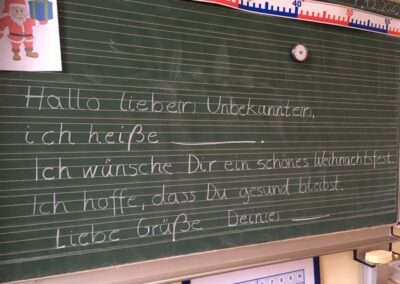 Hallo liebe(r) Unbekannte(r),
ich heiße ________.
Ich wünsche Dir ein schönes Weihnachtsfest.
Ich hoffe, dass Du gesund bleibst.
Liebe Grüße Dein(e) ____